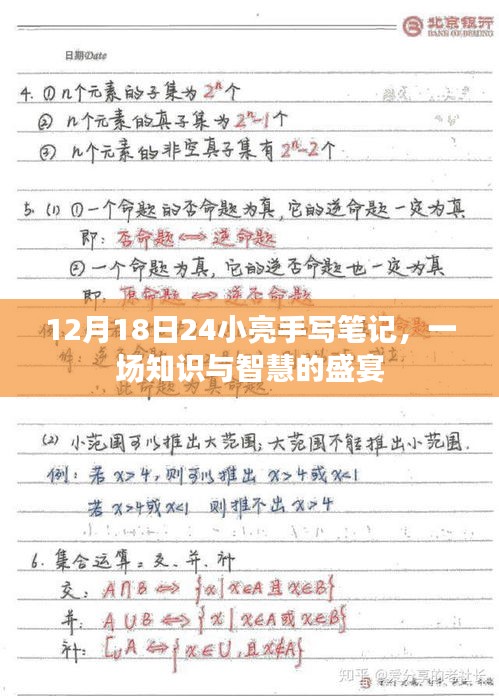 北京银行
BANK OF BEIJING
日期Date
4. ① n个元素的子集为 2ⁿ个
② n个元素的真子集为 2ⁿ-1个
③ n个元素的非空真子集有 2ⁿ-2个
5. (1) ① 一个命题的否命题为真,它的逆命题一定为真
即: 否命题 ⟺ 逆命题
② 一个命题为真,它的逆否命题也一定为真
即: 原命题 ⟺ 逆否命题
12月18日24小亮手写笔记,一
场知识与智慧的盛宴
(2) 小范围可以推出大范围;大范围不能推出小范围.
例: 若 x>4, 则可以推出 x>4或x<1
若 x>4或x<1 则推不出 x>4
6. 集合运算: 交、并、补
交: A∩B ⟺ {x|x∈A且x∈B}
并: A∪B ⟺ {x|x∈A或x∈B}
补: ∁ᵤA ⟺ {x∈U,且x∉A}
知乎 @爱分享的老社长